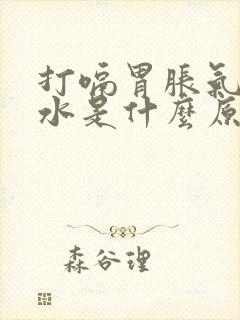 打嗝胃脹氣
水是什麼原
森谷理